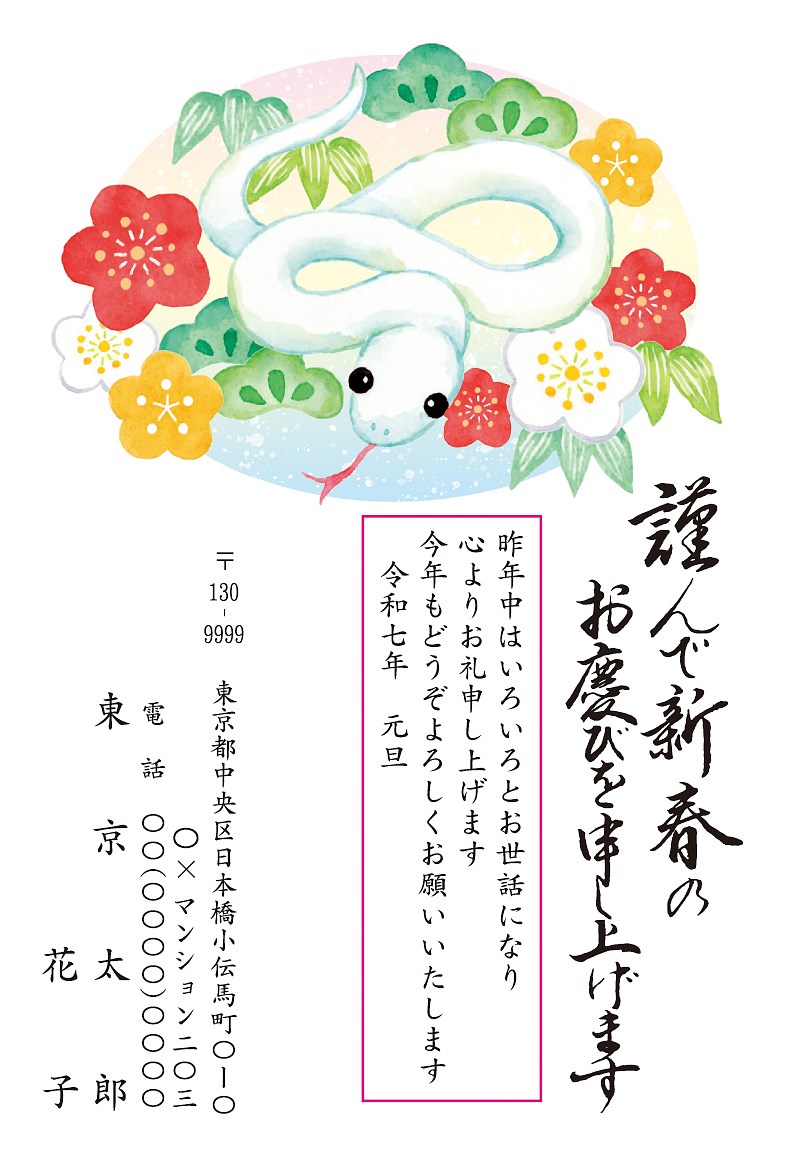 謹んで新春の
お慶びを申し上げます
昨年中はいろいろとお世話になり
心よりお礼申し上げます
今年もどうぞよろしくお願いいたします
令和七年　元旦
〒130-9999
東京都中央区日本橋小伝馬町〇ー〇
〇×マンション二〇三
電話　〇〇(〇〇〇〇)〇〇〇〇
東　京　太　郎
花　子